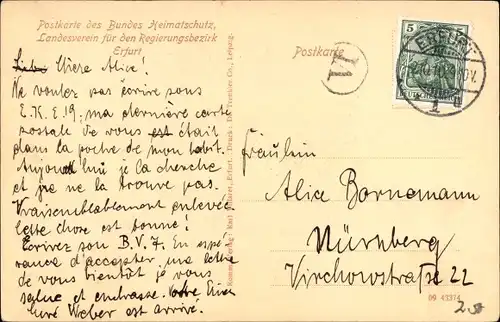 Postkarte des Bundes Heimatschutz,
Landesverein für den Regierungsbezirk
Erfurt
Postkarte
5
ERFURT
1
Chere Alice!
Ne voulez pas écrire sous
E.K.E.19, ma dernière carte
postale de vous est était
dans la poche de mon habit.
Aujourd hui je la cherche
et je ne la trouve pas.
Vraisemblablement enlevée
cette chose est bonne!
Ecrivez son B.V.7. En espé-
rance d'accepter ma lettre
de vous bientôt je vous
salue et embrasse.
Weber est arrivé.
Fräulein
Alice Bornemann
Nürnberg
Virchowstraße 22
09 43374